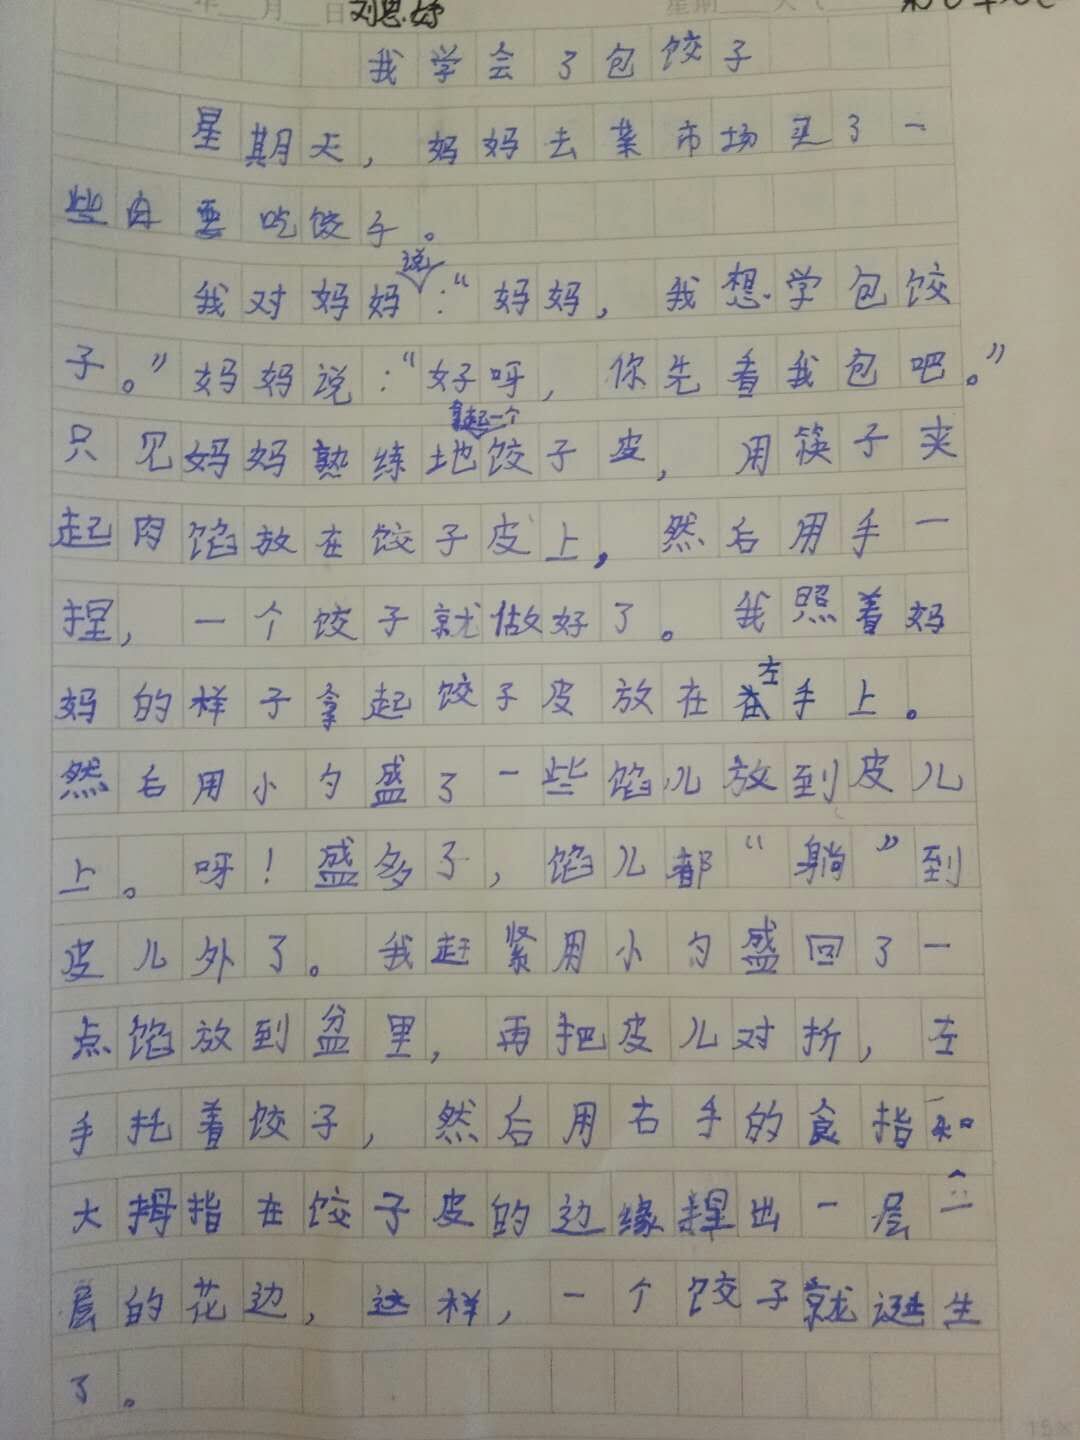 年 月 日 刘思妤 星期
我学会了包饺子
星期天，妈妈去菜市场买了一
些肉要吃饺子。
我对妈妈说：“妈妈，我想学包饺
子。”妈妈说：“好呀，你先看我包吧。”
只见妈妈熟练地拿起一个饺子皮，用筷子夹
起肉馅放在饺子皮上，然后用手一
捏，一个饺子就做好了。我照着妈
妈的样子拿起饺子皮放在左手上。
然后用小勺盛了一些馅儿放到皮儿
上。呀！盛多了，馅儿都“躺”到
皮儿外了。我赶紧用小勺盛回了一
点馅放到盆里，再把皮儿对折，左
手托着饺子，然后用右手的食指和
大拇指在饺子皮的边缘捏出一层
层的花边，这样，一个饺子就诞生
了。